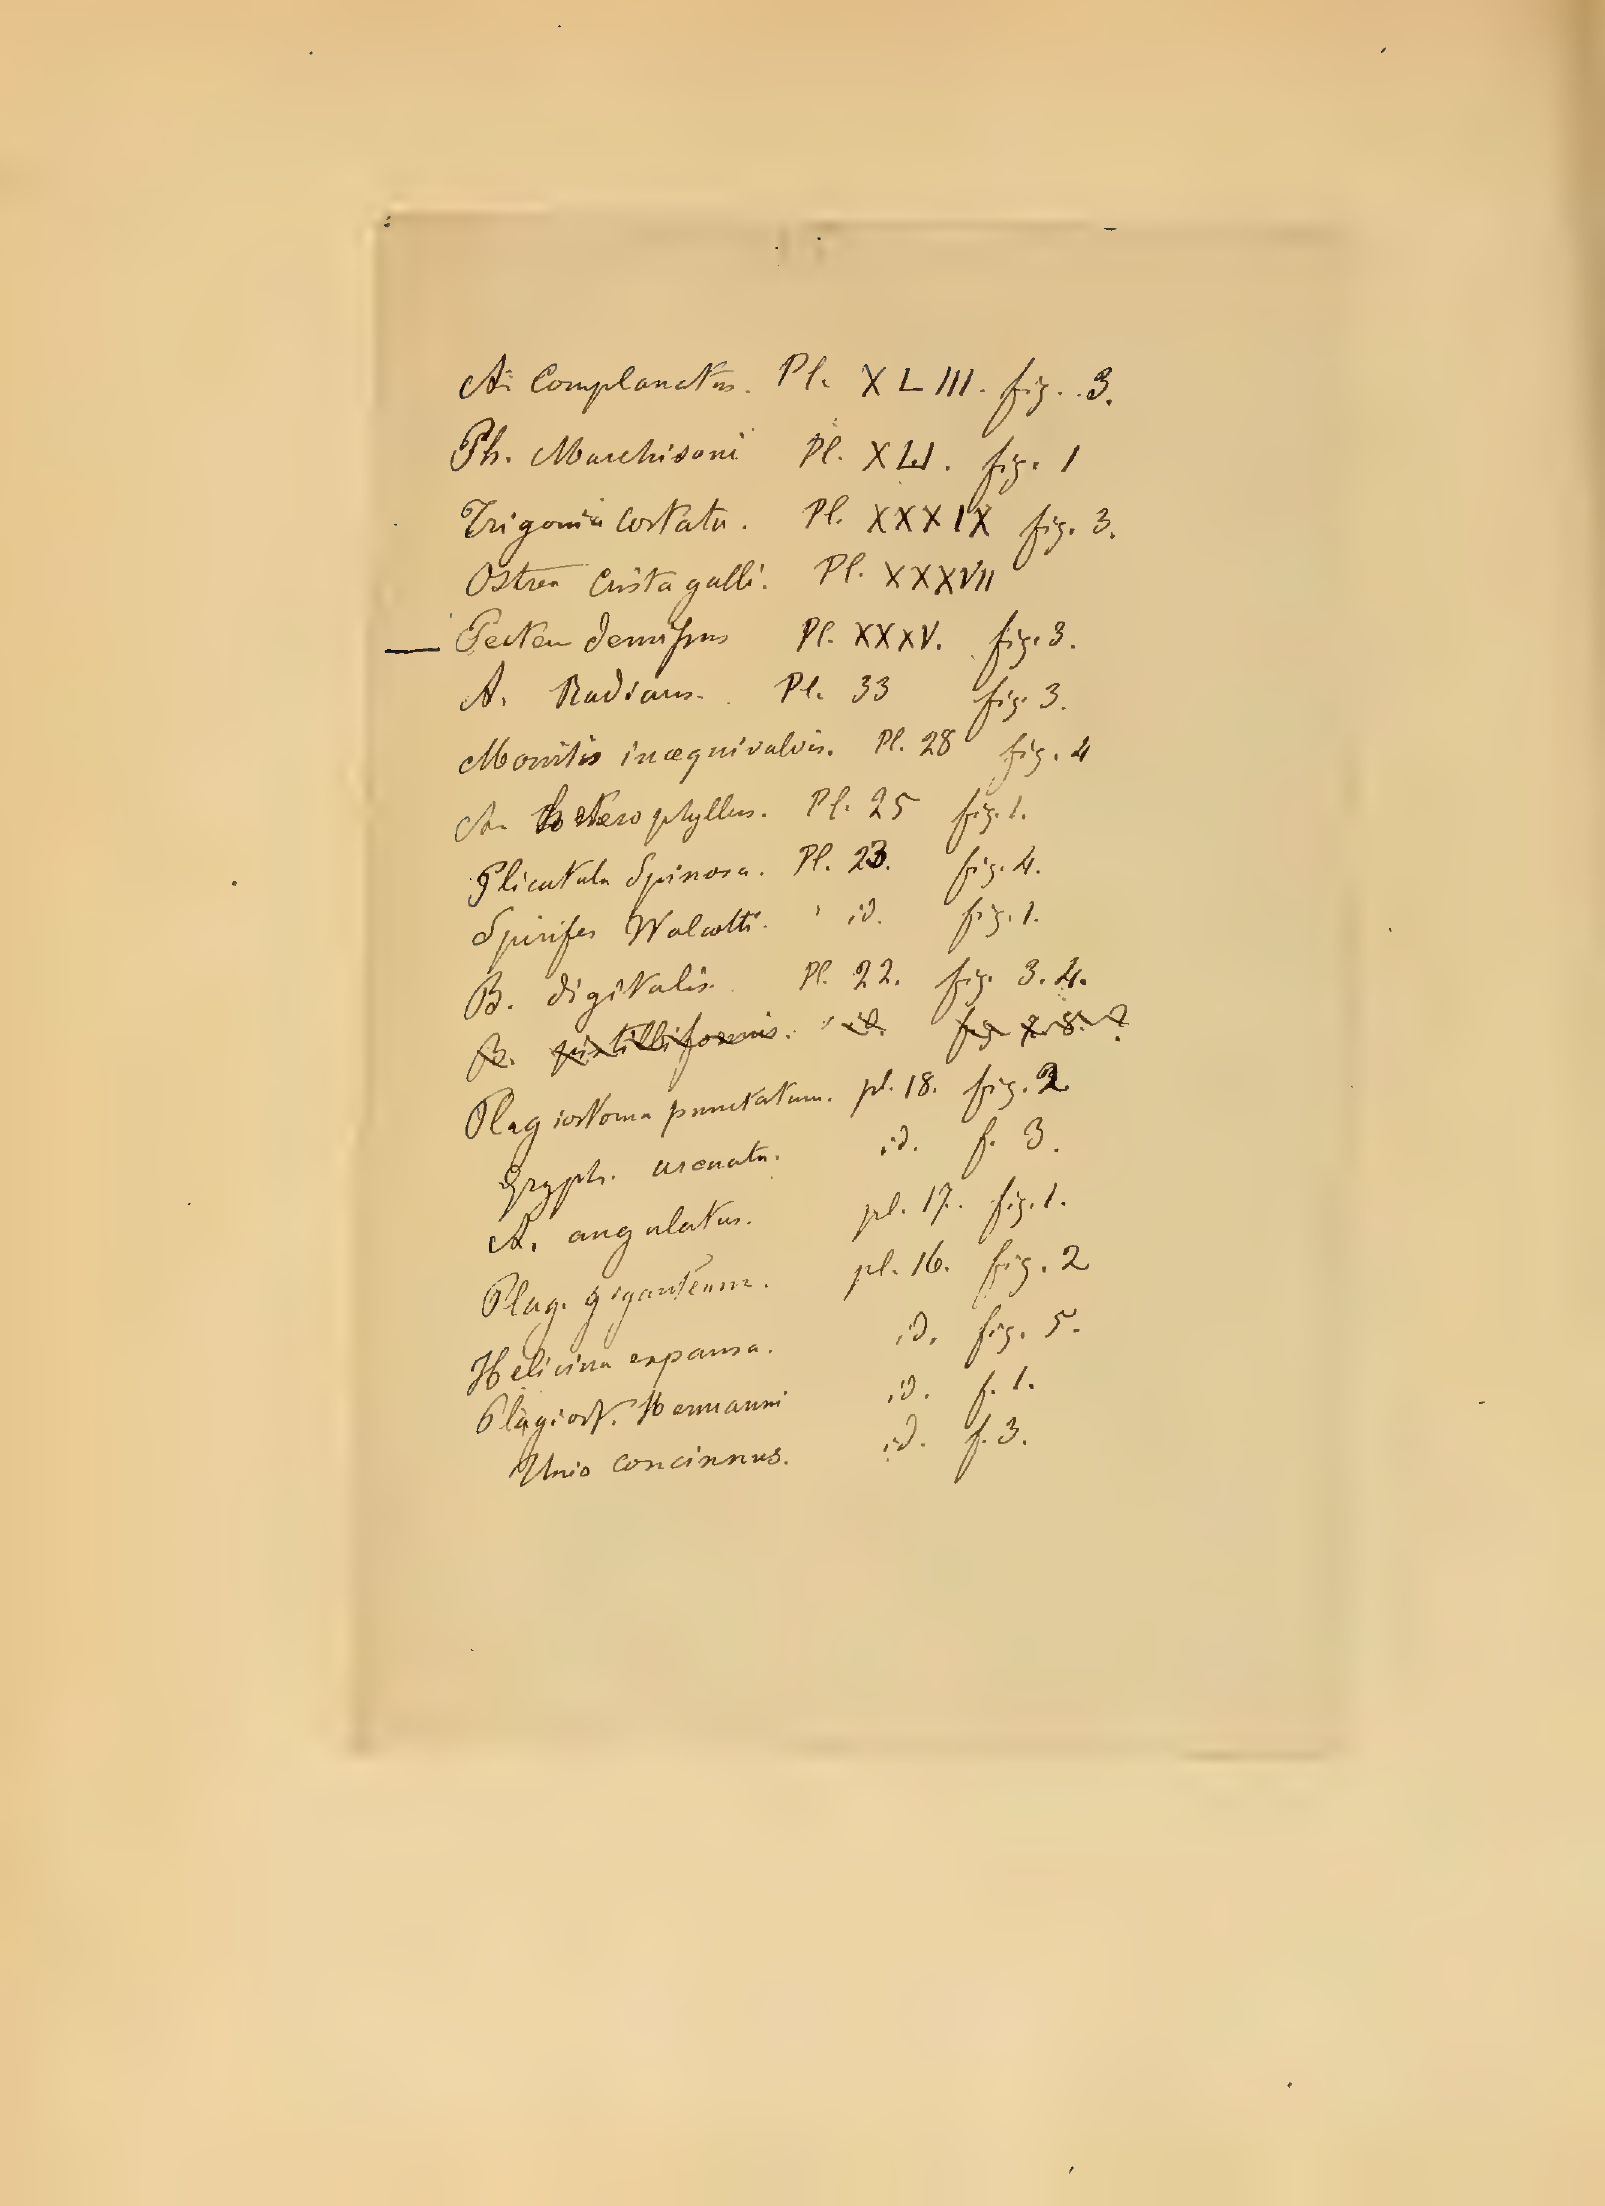 A. Complanatus. Pl. XLIII. fig. 3.
Ph. Murchisoni Pl. XLI. fig. 1
Trigonia Costata. Pl. XXXIX fig. 3.
Ostrea Crista galli. Pl. XXXVII
— Pecten demissus Pl. XXXV. fig. 3.
A. Radians. Pl. 33 fig. 3.
Monitis inæquivalvis. Pl. 28 fig. 4
A. heterophyllus. Pl. 25 fig. 1.
Plicatula Spinosa. Pl. 23. fig. 4.
Spirifer Walcotti. id. fig. 1.
B. digitalis. Pl. 22. fig. 3. 4.
B. pistilliformis. id. fig. 8. ?
Plagiostoma punctatum. pl. 18. fig. 2
Gryph. arcuata. id. f. 3.
A. angulatus. pl. 17. fig. 1.
Plag. giganteum. pl. 16. fig. 2
Helicina expansa. id. fig. 5.
Plagiost. Hermanni id. f. 1.
Unio concinnus. id. f. 3.